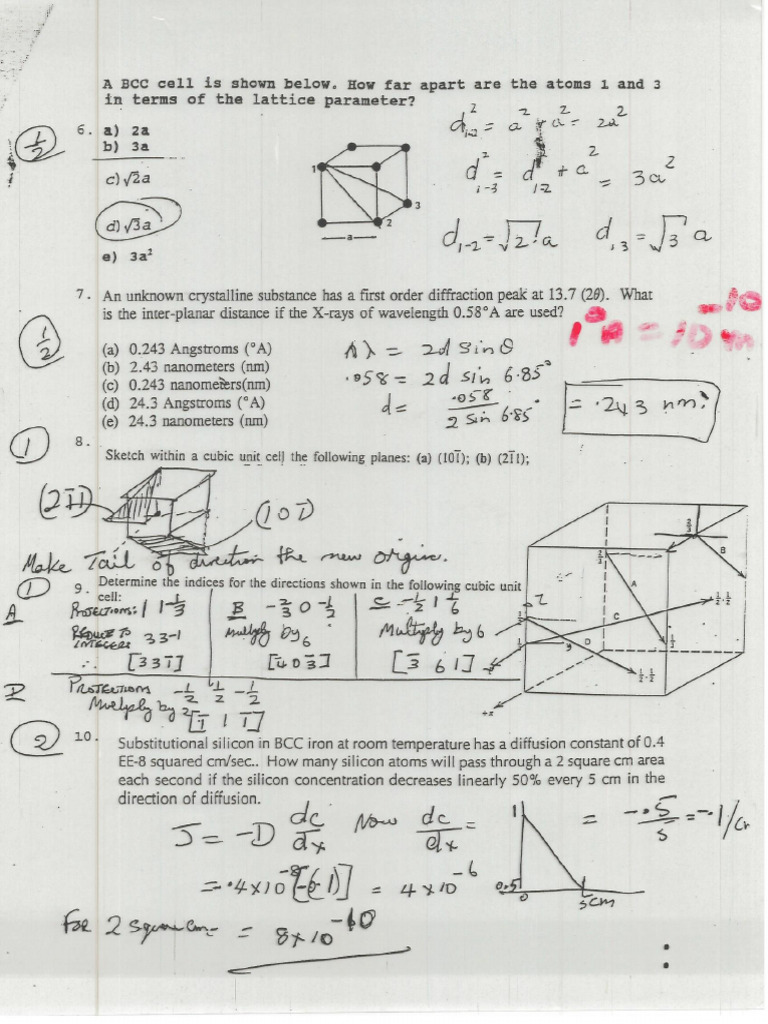 A BCC cell is shown below. How far apart are the atoms 1 and 3
in terms of the lattice parameter?
1/2
6. a) 2a
b) 3a
c) √2a
d) √3a
e) 3a²
1
2
3
a
d²₁₋₂ = a² + a² = 2a²
d²₁₋₃ = d²₁₋₂ + a² = 3a²
d₁₋₂ = √2 a d₁,₃ = √3 a
7. An unknown crystalline substance has a first order diffraction peak at 13.7 (2θ). What
is the inter-planar distance if the X-rays of wavelength 0.58°A are used?
1°A = 10⁻¹⁰ m
1/2
(a) 0.243 Angstroms (°A)
(b) 2.43 nanometers (nm)
(c) 0.243 nanometers(nm)
(d) 24.3 Angstroms (°A)
(e) 24.3 nanometers (nm)
nλ = 2d Sin θ
.058 = 2d sin 6.85°
d = .058 / 2 sin 6.85°
= .243 nm
1
8.
Sketch within a cubic unit cell the following planes: (a) (101̄); (b) (21̄1);
(21̄1)
(101̄)
Make Tail of direction the new origin.
1
9. Determine the indices for the directions shown in the following cubic unit
cell:
A
PROJECTIONS: 1 1 -1/3
REDUCE TO INTEGERS 3 3 -1
∴ [3 3 1̄]
B -2/3 0 -1/2
Multiply by 6
[4̄ 0 3̄]
C = -1/2 1 1/6
Multiply by 6
[3̄ 6 1]
D
PROJECTIONS -1/2 1/2 -1/2
Multiply by 2
[1̄ 1 1̄]
2/3
B
2/3
A
Z
1/2
C
1/2,1/2
D
y
1/3
1/2,1/2
+x
2
10.
Substitutional silicon in BCC iron at room temperature has a diffusion constant of 0.4
EE-8 squared cm/sec.. How many silicon atoms will pass through a 2 square cm area
each second if the silicon concentration decreases linearly 50% every 5 cm in the
direction of diffusion.
J = -D dc/dx Now dc/dx = = -.5/5 = -.1/cm
1
0.5
0
5cm
= -.4×10⁻⁸[-.1)] = 4×10⁻⁶
For 2 square cm = = 8×10⁻¹⁰